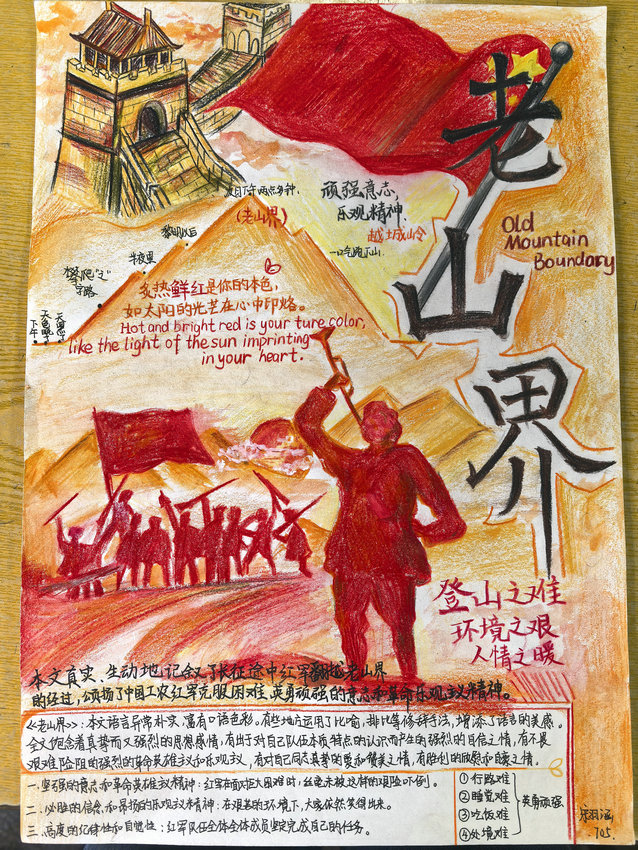 老山界
Old
Mountain
Boundary
顽强意志,
乐观精神
越城岭
一口气跑下山
(老山界)
黎明以后
半夜里
攀爬"之"
字路
天黑了
天色晚了
下午
炙热鲜红是你的本色,
如太阳的光芒在心中印烙。
Hot and bright red is your ture color,
like the light of the sun imprinting
in your heart.
登山之难
环境之艰
人情之暖
本文真实、生动地记叙了长征途中红军翻越老山界
的经过,颂扬了中国工农红军克服困难、英勇顽强的意志和革命乐观主义精神。
《老山界》:本文语言异常朴实,富有口语色彩。有些地方运用了比喻,排比等修辞手法,增添了语言的美感。
全文饱含着真挚而又强烈的思想感情,有出于对自己队伍本质特点的认识而产生的强烈的自信之情,有不畏
艰难险阻的强烈的革命英雄主义和乐观主义,有对自己同志真挚的爱和赞美之情,有胜利的欣慰和自豪之情。
一.坚强的意志和革命英雄主义精神:红军在面对巨大困难时,丝毫未被这样的艰险吓倒。
二.必胜的信念和昂扬的乐观主义精神:在艰苦的环境下,大家依然笑得出来。
三.高度的纪律性和自觉性:红军队伍全体全体成员坚定完成自己的任务。
①行路难
②睡觉难
③吃饭难
④处境难
英勇顽强
705.